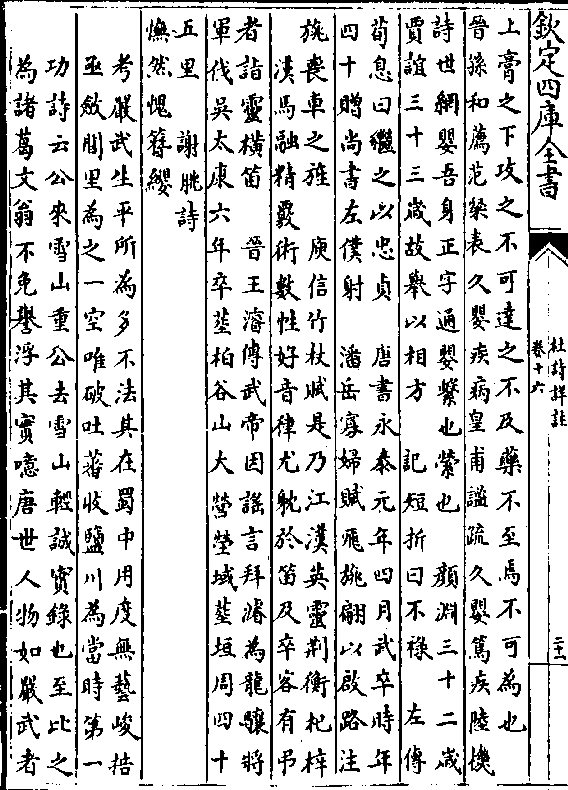 欽定四庫全書
杜詩詳註
卷十六
二十一
上膏之下攻之不可達之不及藥不至焉不可為也
晉孫和薦范粲表久嬰疾病皇甫謐疏久嬰篤疾陸機
詩世網嬰吾身正字通嬰縈也縈也 顏淵三十二歲
賈誼三十三歲故舉以相方 記短折曰不祿 左傳
荀息曰繼之以忠貞 唐書永泰元年四月武卒時年
四十贈尚書左僕射 潘岳寡婦賦飛旐翩以啟路注
旐喪車之旌 庾信竹杖賦是乃江漢英靈荆衡杞梓
漢馬融精覈術數性好音律尤躭於笛及卒客有弔
者詣靈橫笛 晉王濬傳武帝因謠言拜濬為龍驤將
軍伐吳太康六年卒塟柏谷山大營塋域塟垣周四十
五里 謝朓詩
憮然愧簪纓
考嚴武生平所為多不法其在蜀中用度無藝峻掊
亟斂閭里為之一空唯破吐蕃收鹽川為當時第一
功詩云公來雪山重公去雪山輕誠實錄也至比之
為諸葛文翁不免譽浮其實噫唐世人物如嚴武者